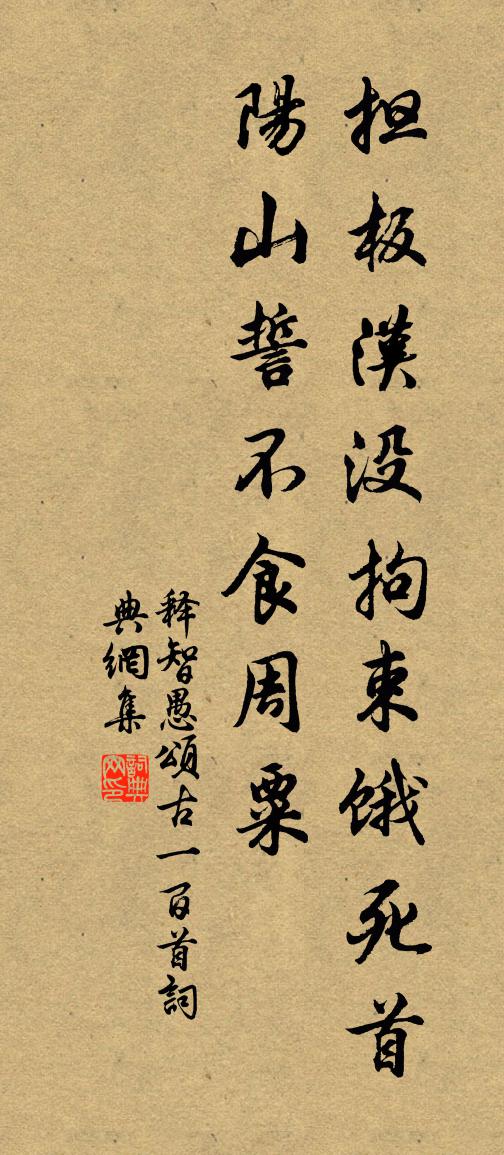 担板漢没拘束餓死首
陽山誓不食周粟
释智愚頌古一百首詞
典網集
詞典
网印